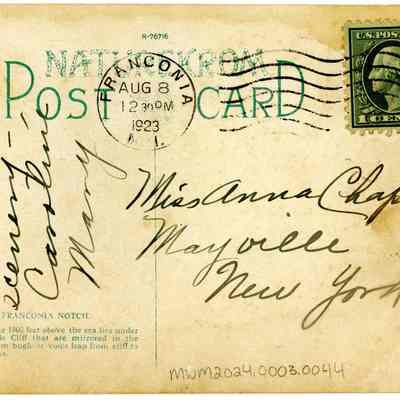 R-76716
NATURSKROM
POST CARD
FRANCONIA
AUG 8
12 30 PM
1923
U.S. POS
1 CENT
scenery-
Caroline
Mary
Miss Anna Chap
Mayville
New York
FRANCONIA NOTCH.
feet above the sea lies under
Cliff that are mirrored in the
bugle or voice leap from cliff to
MWM2024.0003.0044